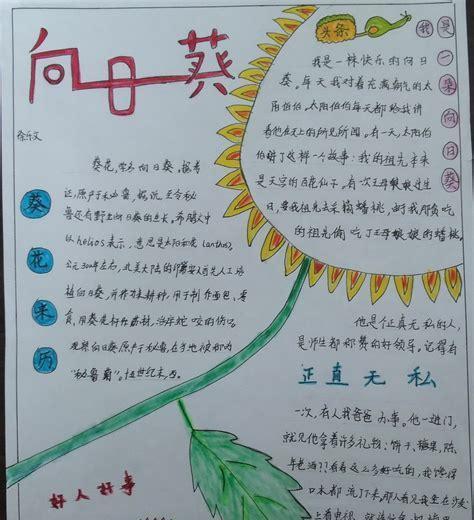 向日葵
徐乐文
头条
我是一集向日葵
我是一株快乐的向日
葵。每天我对着充满朝气的太
阳伯伯。太阳伯伯每天都给我讲
着他在天上的所见所闻。有一天,太阳伯
伯讲了这样一个故事:我的祖先本来
是天宫的百花仙子。有一次王母娘娘过生
日,要我祖先去采摘蟠桃,由于我那贪吃
的祖先偷吃了王母娘娘的蟠桃。
葵花来历
葵花,学名向日葵。据考
证,原产于秘鲁,据说,至今秘
鲁还有野生向日葵的生长。希腊人中
以helios表示,意思是太阳和花(anthos),
公元300年左右,北美大陆的印第安人首先人工培
植向日葵,并作为耕种,用于制作面包、零
食,用葵花籽作药材,治毒蛇咬的伤口。
正直无私
他是个正直无私的人,
是师生都称赞的好领导。记得有
一次,有人找爸爸办事。他一进门,
就见他拿着许多礼物:饼干、糖果、陈
年老酒??看着这么多好吃的,我馋得
口水都流下来。那人看见我坐在沙发
好人好事